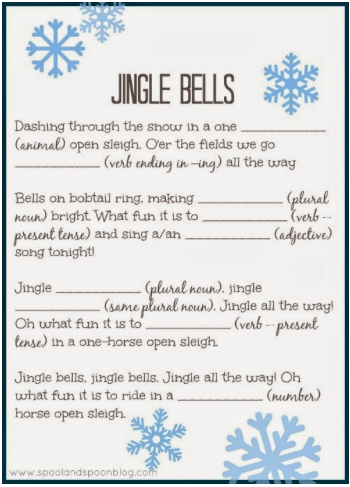 JINGLE BELLS
Dashing through the snow in a one ____________
(animal) open sleigh. O'er the fields we go
____________ (verb ending in -ing) all the way
Bells on bobtail ring, making ____________ (plural
noun) bright. What fun it is to ____________ (verb --
present tense) and sing a/an ____________ (adjective)
song tonight!
Jingle ____________ (plural noun), jingle
____________ (same plural noun). Jingle all the way!
Oh what fun it is to ____________ (verb -- present
tense) in a one-horse open sleigh.
Jingle bells, jingle bells. Jingle all the way! Oh
what fun it is to ride in a ____________ (number)
horse open sleigh.
www.spoolandspoonblog.com